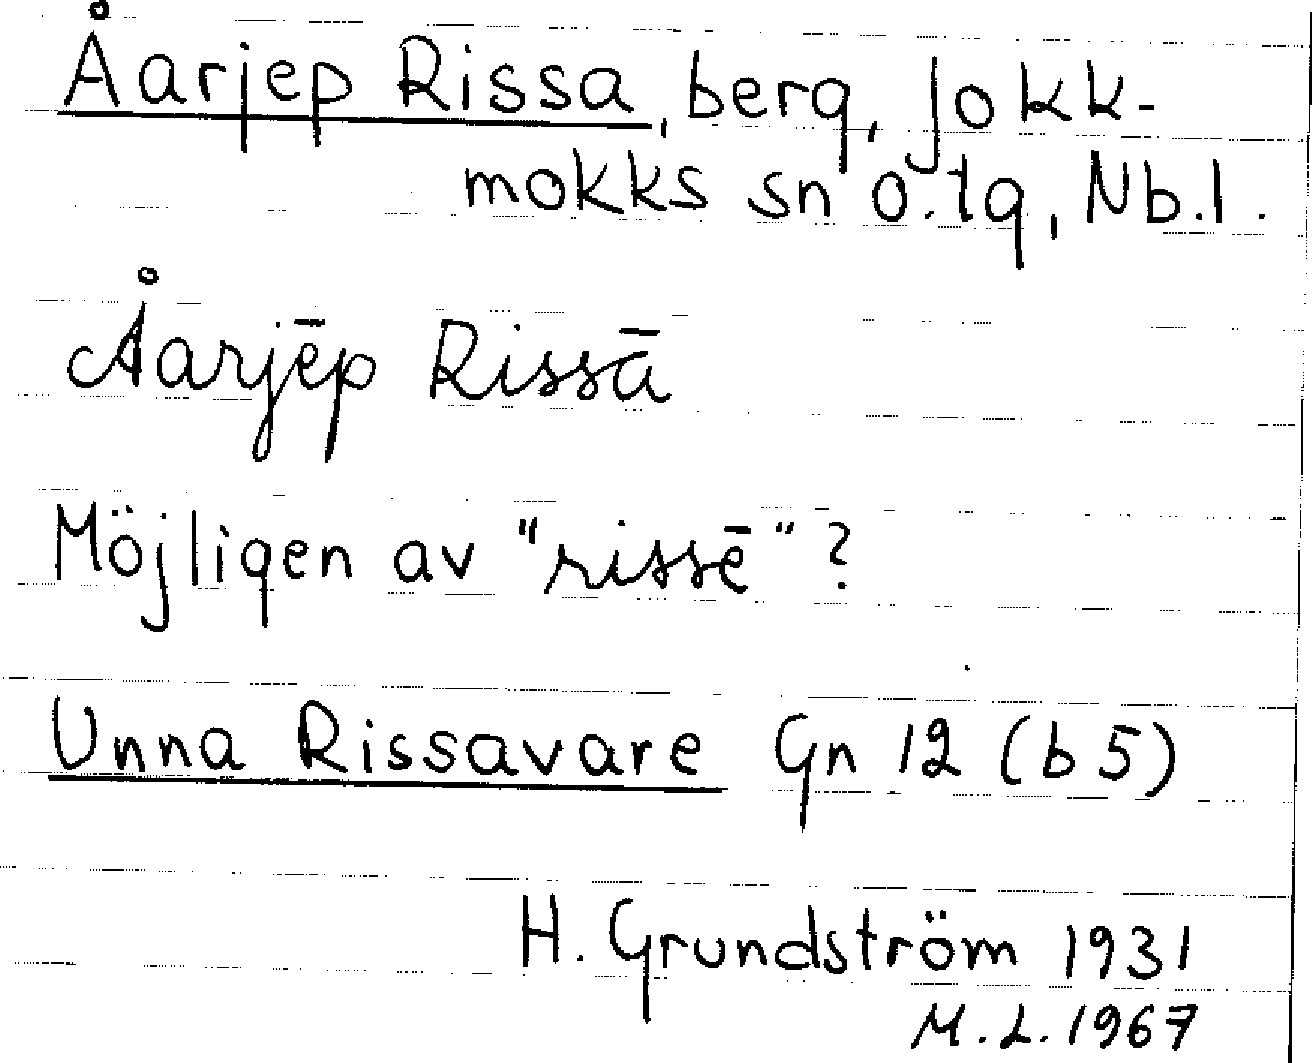 Åarjep Rissa, berg, Jokk-
mokks sn o. tg, Nb. l.
Åarjēp Rissā
Möjligen av "rissē"?
Unna Rissavare Gn 12 (b 5)
H. Grundström 1931
M. L. 1967